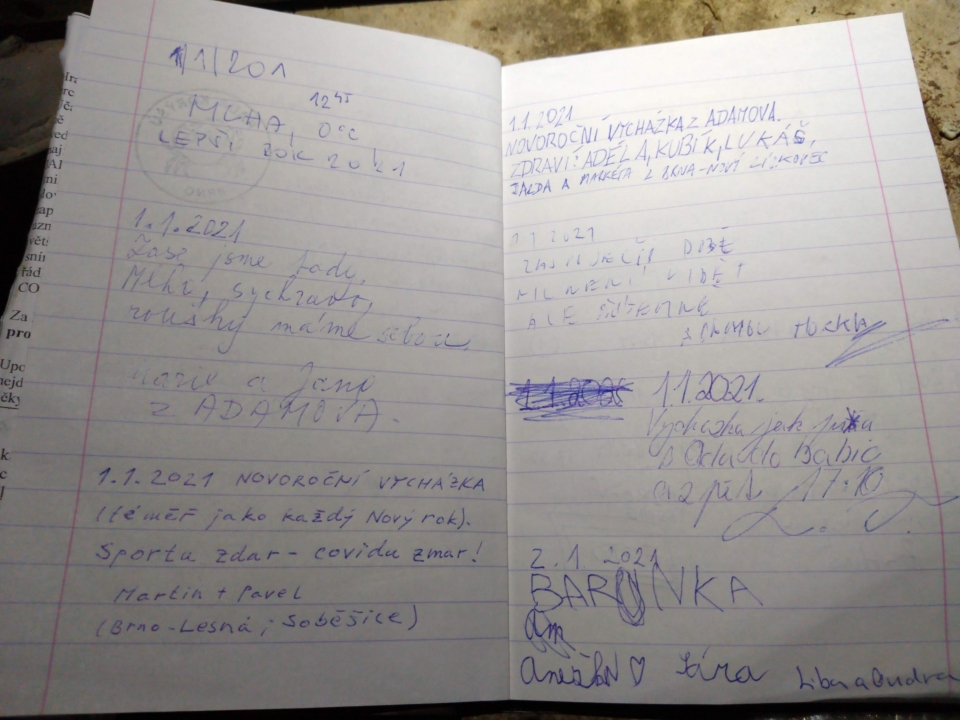 1/1/201
12 45
MLHA, 0°C
LEPŠÍ ROK 2021
1.1.2021
Zase jsme tady,
Mlha, sychravo,
roušky máme sebou,
Marie a Jana
z ADAMOVA.
1.1.2021 NOVOROČNÍ VYCHÁZKA
(téměř jako každý Nový rok).
Sportu zdar - covidu zmar!
Martin + Pavel
(Brno-Lesná, Soběšice)
1.1.2021
NOVOROČNÍ VYCHÁZKA Z ADAMOVA.
ZDRAVÍ: ADÉLA, KUBÍK, LUKÁŠ,
A MARKÉTA Z BRNA-NOVÝ LÍSKOVEC
1.1 2021
DOBĚ
NIC NENÍ VIDĚT
ALE
1.1.2021.
Vycházka jak
Babic
a zpět 17:10
2.1 2021
BARUNKA
Anežka ♡ Sára Liba a Ondra